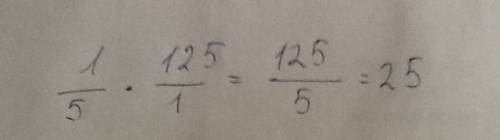 1/5 · 125/1 = 125/5 = 25